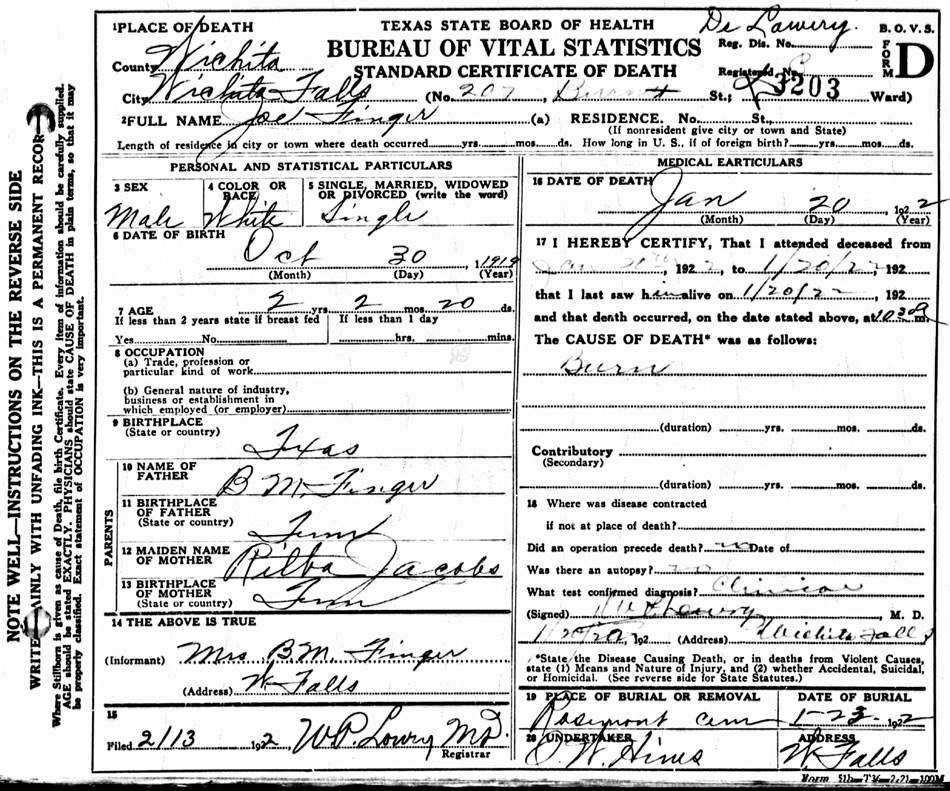 TEXAS STATE BOARD OF HEALTH
BUREAU OF VITAL STATISTICS
STANDARD CERTIFICATE OF DEATH
De Lowery.
Reg. Dis. No.
Registered No.
3203
B. O. V. S.
FORM D
1 PLACE OF DEATH
County Wichita
City Wichita Falls (No. 207, Burnett St.; Ward)
2 FULL NAME Joe Finger (a) RESIDENCE. No. St.,
(If nonresident give city or town and State)
Length of residence in city or town where death occurred yrs. mos. ds. How long in U. S., if of foreign birth? yrs. mos. ds.
PERSONAL AND STATISTICAL PARTICULARS
3 SEX
Male
4 COLOR OR RACE
White
5 SINGLE, MARRIED, WIDOWED OR DIVORCED (write the word)
Single
6 DATE OF BIRTH
Oct 30 1919
(Month) (Day) (Year)
7 AGE 2 yrs. 2 mos. 20 ds.
If less than 2 years state if breast fed
Yes No.
If less than 1 day
hrs. mins.
8 OCCUPATION
(a) Trade, profession or
particular kind of work
(b) General nature of industry,
business or establishment in
which employed (or employer)
9 BIRTHPLACE
(State or country) Texas
PARENTS
10 NAME OF FATHER B M. Finger
11 BIRTHPLACE OF FATHER
(State or country) Tenn
12 MAIDEN NAME OF MOTHER Rilba Jacobs
13 BIRTHPLACE OF MOTHER
(State or country) Tenn
14 THE ABOVE IS TRUE
(Informant) Mrs B.M. Finger
(Address) W. Falls
15
Filed 2/13 192 2 W.P. Lowry MD.
Registrar
MEDICAL EARTICULARS
16 DATE OF DEATH Jan 20, 192 2
(Month) (Day) (Year)
17 I HEREBY CERTIFY, That I attended deceased from
Jan 20th, 192 2, to 1/20/22, 192
that I last saw him alive on 1/20/22, 192
and that death occurred, on the date stated above, at m.
The CAUSE OF DEATH* was as follows:
Burn
(duration) yrs. mos. ds.
Contributory
(Secondary)
(duration) yrs. mos. ds.
18 Where was disease contracted
if not at place of death?
Did an operation precede death? no Date of
Was there an autopsy? no
What test confirmed diagnosis? Clinical
(Signed) M. D.
1/20/22, 192 (Address) Wichita Falls
*State the Disease Causing Death, or in deaths from Violent Causes,
state (1) Means and Nature of Injury, and (2) whether Accidental, Suicidal,
or Homicidal. (See reverse side for State Statutes.)
19 PLACE OF BURIAL OR REMOVAL
Rosemont cem
DATE OF BURIAL
1-23- 1922
20 UNDERTAKER
O. W. Hines
ADDRESS
W. Falls
Form 51b—TX—2-21—100M
NOTE WELL—INSTRUCTIONS ON THE REVERSE SIDE
WRITE PLAINLY WITH UNFADING INK—THIS IS A PERMANENT RECORD
Where Stillborn is given as cause of Death, file birth Certificate. Every item of information should be carefully supplied.
AGE should be stated EXACTLY. PHYSICIANS should state CAUSE OF DEATH in plain terms, so that it may
be properly classified. Exact statement of OCCUPATION is very important.